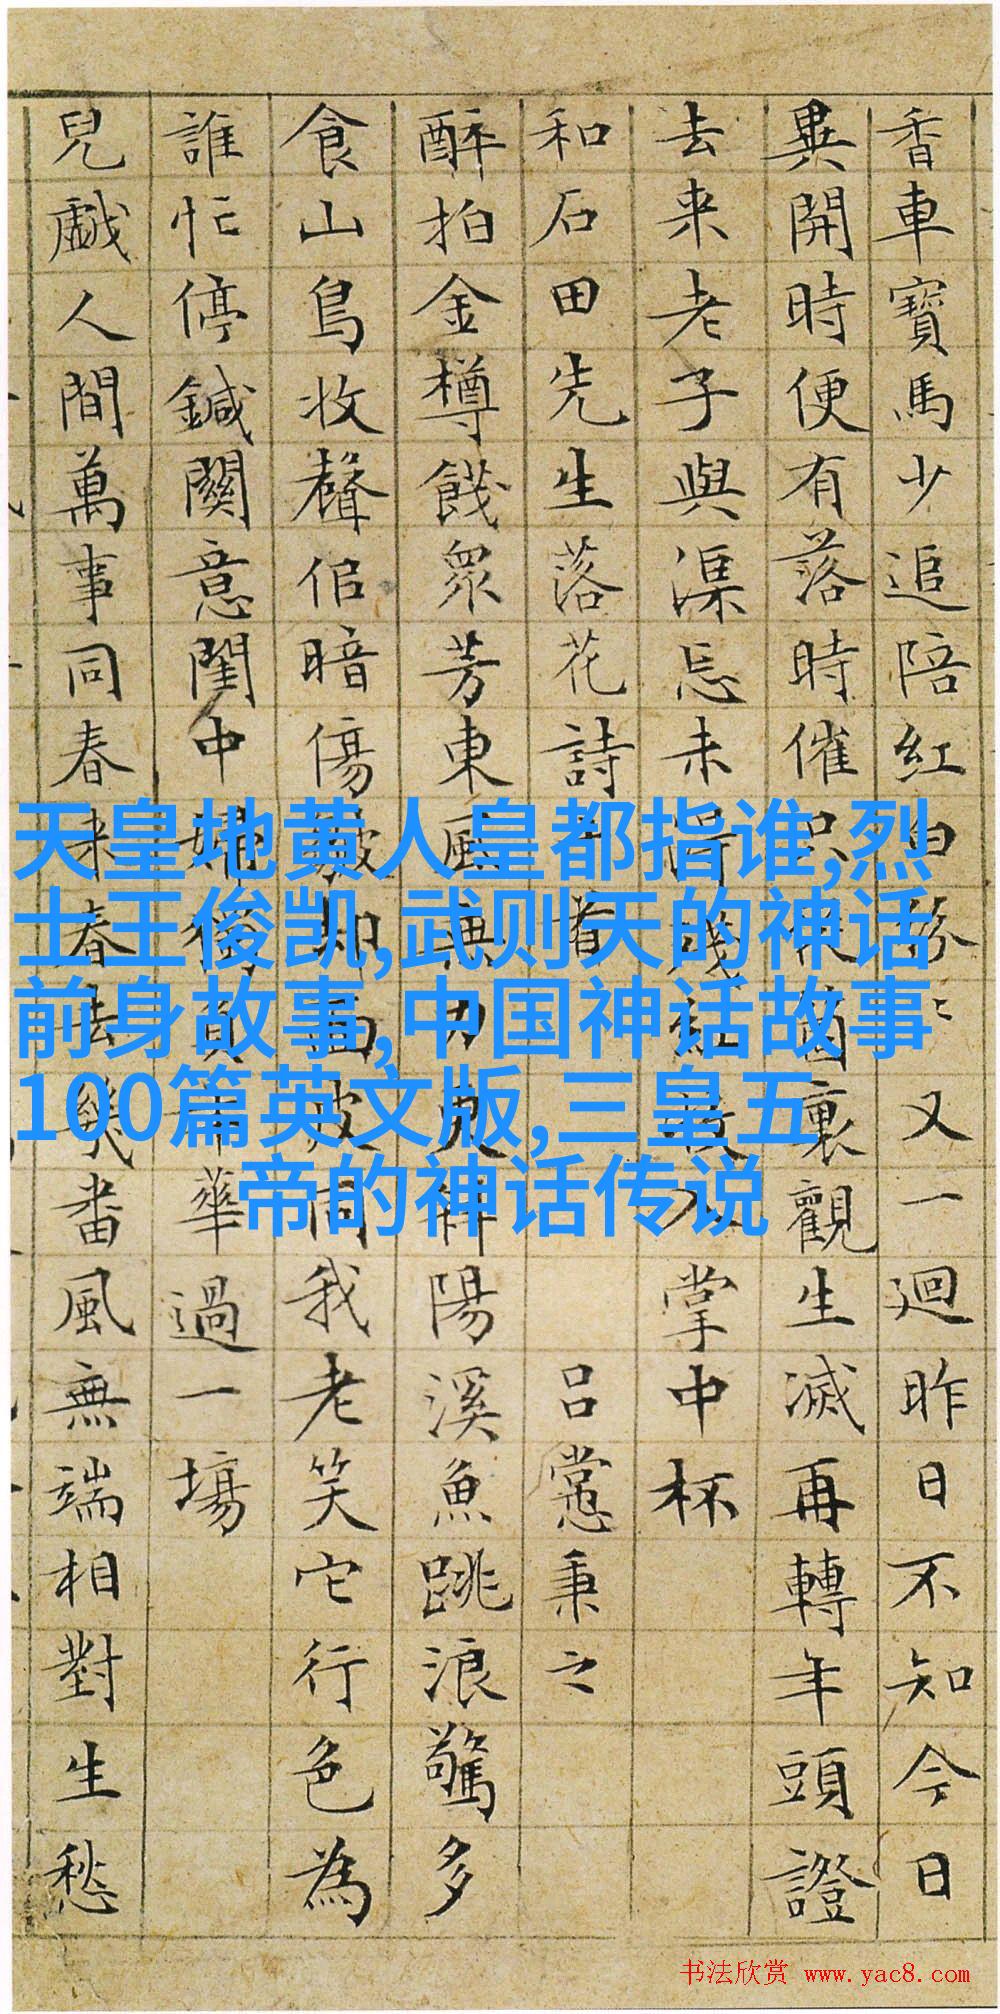 香車寶馬少追陪紅白紛〻又一廻昨日不知今日
異開時便有落時催只菌裏觀生滅再轉年頭證
去来老子與渠忘未得紅入掌中杯
和石田先生落花詩 吕秉之
醉拍金樽餞衆芳東風無力陽溪魚跳浪驚多
食山鳥收聲侣暗傷皺却面皮同我老笑它行色為
誰忙停鍼關意閨中婦負年華過一塲
兒戯人間萬事同春来春去幾番風無端相對生愁
天皇地黄人皇都指谁,烈
士王俊凯,武则天的神话
前身故事,中国神话故事
100篇英文版,三皇五
帝的神话传说
书法欣赏 www.yac8.com